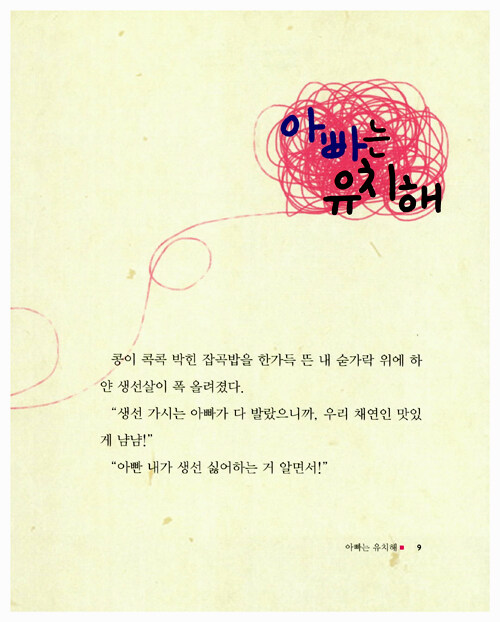 아빠는
유치해
콩이 콕콕 박힌 잡곡밥을 한가득 뜬 내 숟가락 위에 하
얀 생선살이 폭 올려졌다.
“생선 가시는 아빠가 다 발랐으니까, 우리 채연인 맛있
게 냠냠!”
“아빤 내가 생선 싫어하는 거 알면서!”
아빠는 유치해 ■ 9